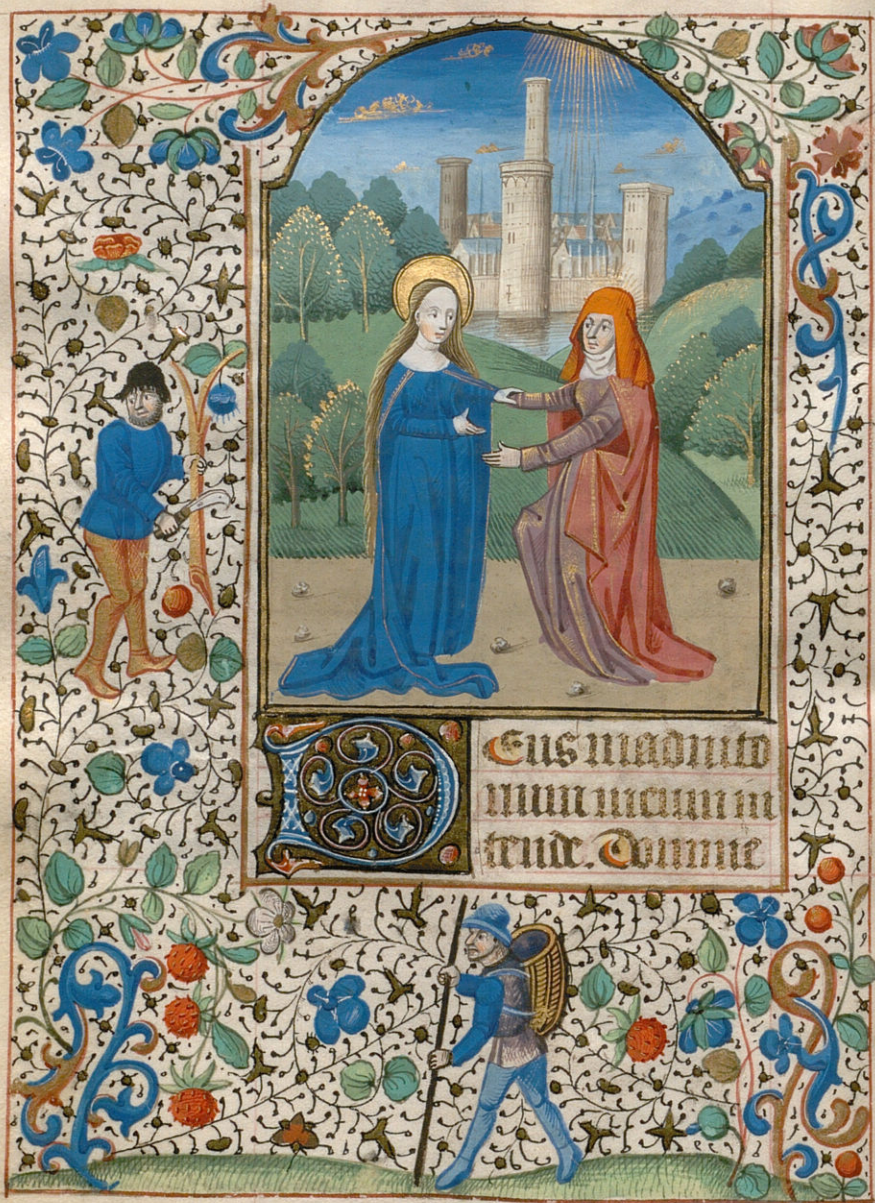 DEus in adiuto
rium meum in
tende. Domine